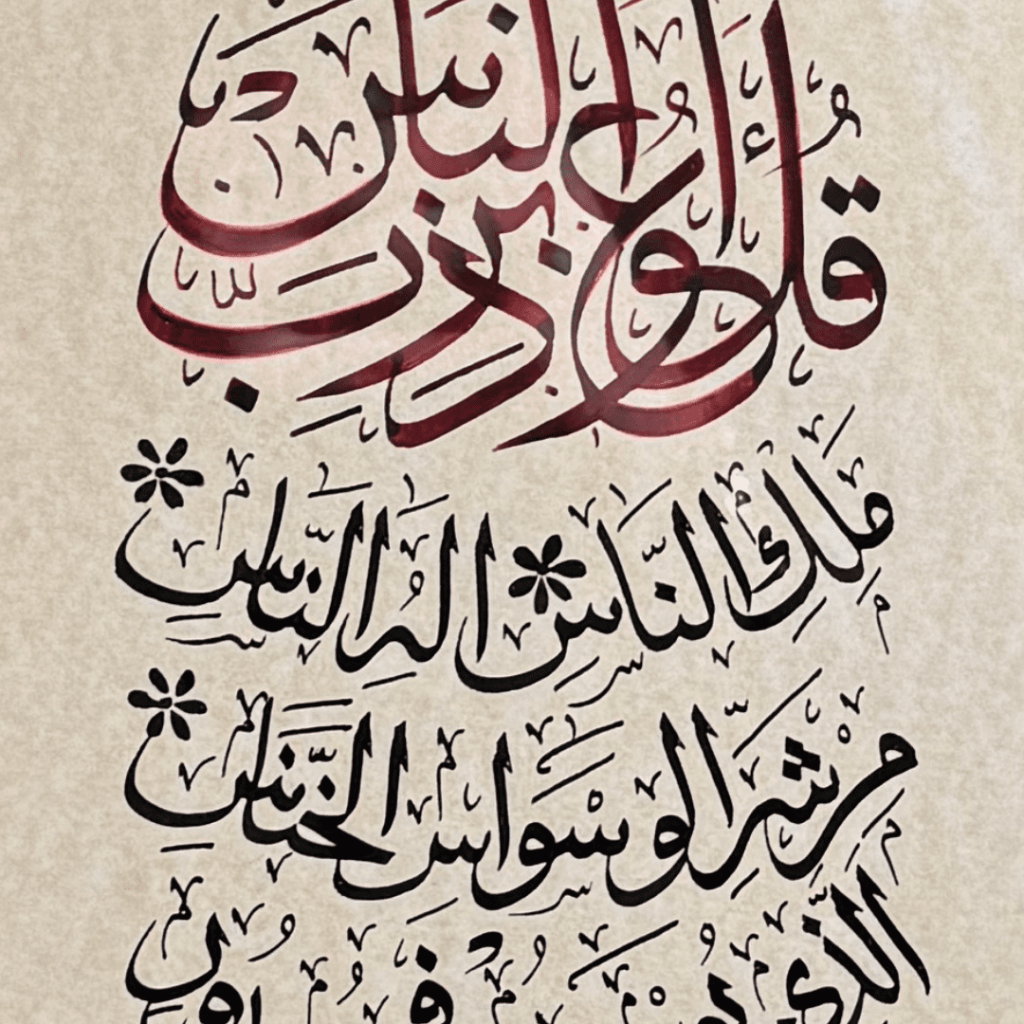 قُلْ أَعُوذُ بِرَبِّ النَّاسِ
مَلِكِ النَّاسِ * إِلَهِ النَّاسِ *
مِنْ شَرِّ الْوَسْوَاسِ الْخَنَّاسِ *
الَّذِي